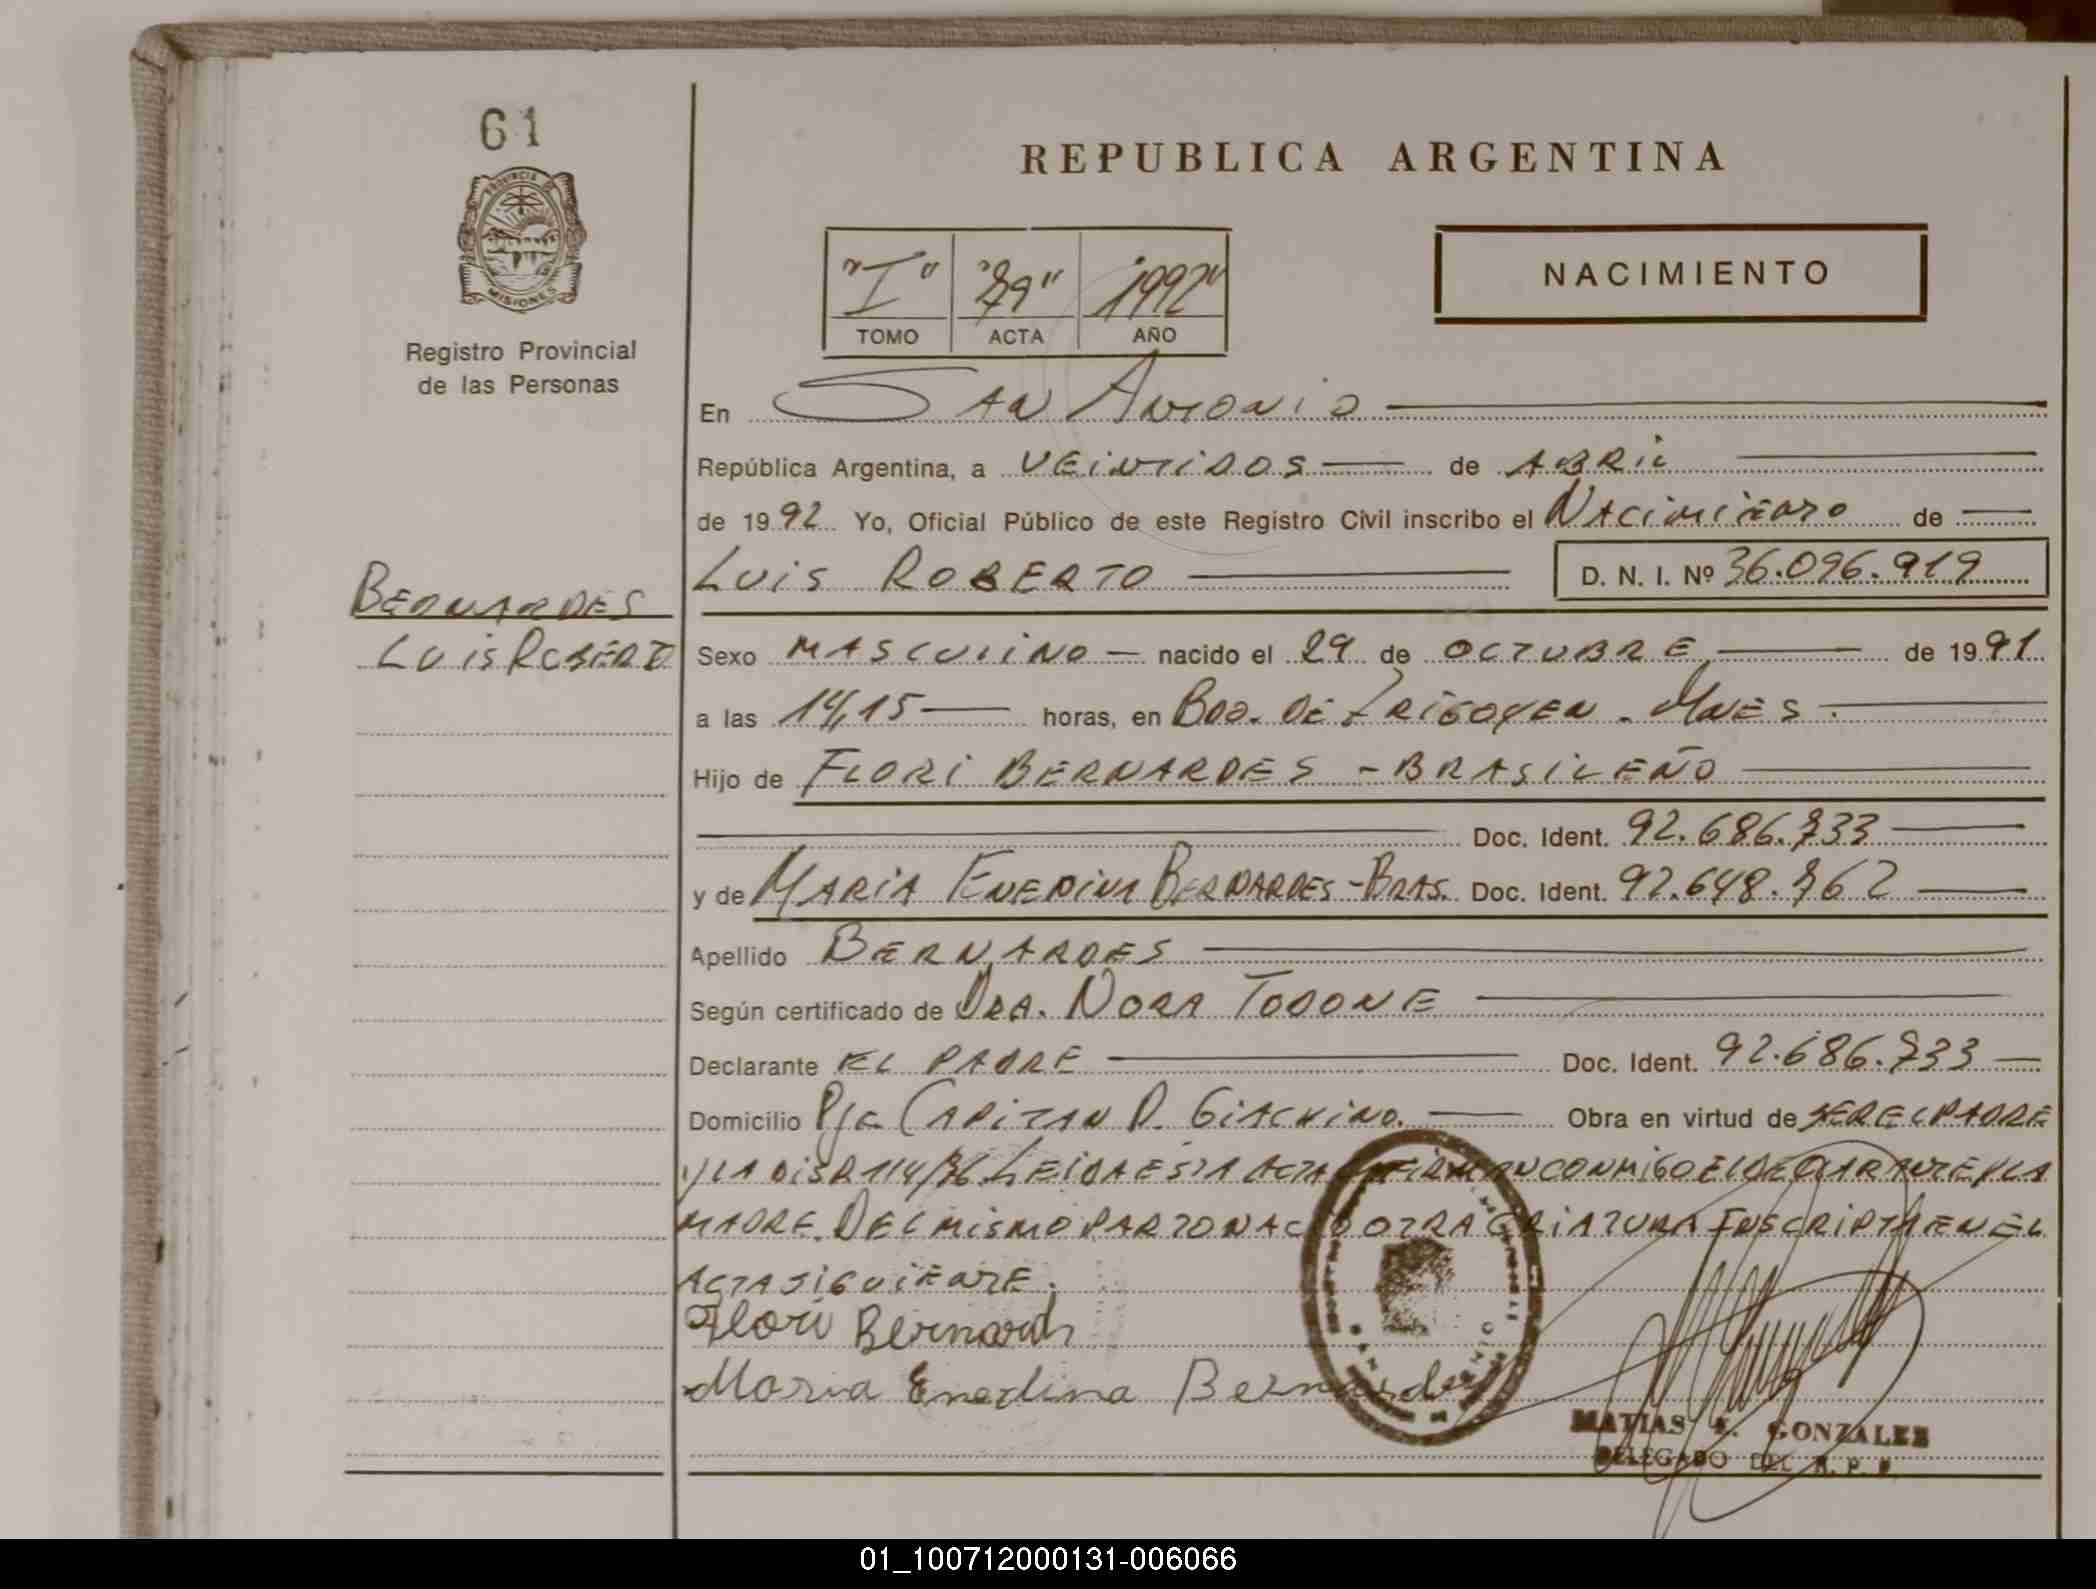 61
PROVINCIA DE
MISIONES
Registro Provincial
de las Personas
REPUBLICA ARGENTINA
"I" "79" 1992"
TOMO ACTA AÑO
NACIMIENTO
En SAN ANTONIO
República Argentina, a VEINTIDOS de ABRIL
de 1992 Yo, Oficial Público de este Registro Civil inscribo el NACIMIENTO de
LUIS ROBERTO D. N. I. Nº 36.096.919
BERNARDES
LUIS ROBERTO
Sexo MASCULINO nacido el 29 de OCTUBRE de 1991
a las 14,15 horas, en BDO. DE IRIGOYEN - MNES.
Hijo de FLORI BERNARDES - BRASILEÑO
Doc. Ident. 92.686.733
y de MARIA ENEDINA BERNARDES - BRAS. Doc. Ident. 92.648.762
Apellido BERNARDES
Según certificado de DRA. NORA TODONE
Declarante EL PADRE Doc. Ident. 92.686.733
Domicilio Pje CAPITAN D. GIACHINO. Obra en virtud de SER EL PADRE
Y LA DISP. 114/76 LEIDA ESTA ACTA FIRMAN CONMIGO EL DECLARANTE Y LA
MADRE. DEL MISMO PARTO NACIO OTRA CRIATURA INSCRIPTA EN EL
ACTA SIGUIENTE.
Flori Bernards
Maria Enedina Bernardes
MATIAS GONZALEZ
DELEGADO DEL R. P. P.
01_100712000131-006066